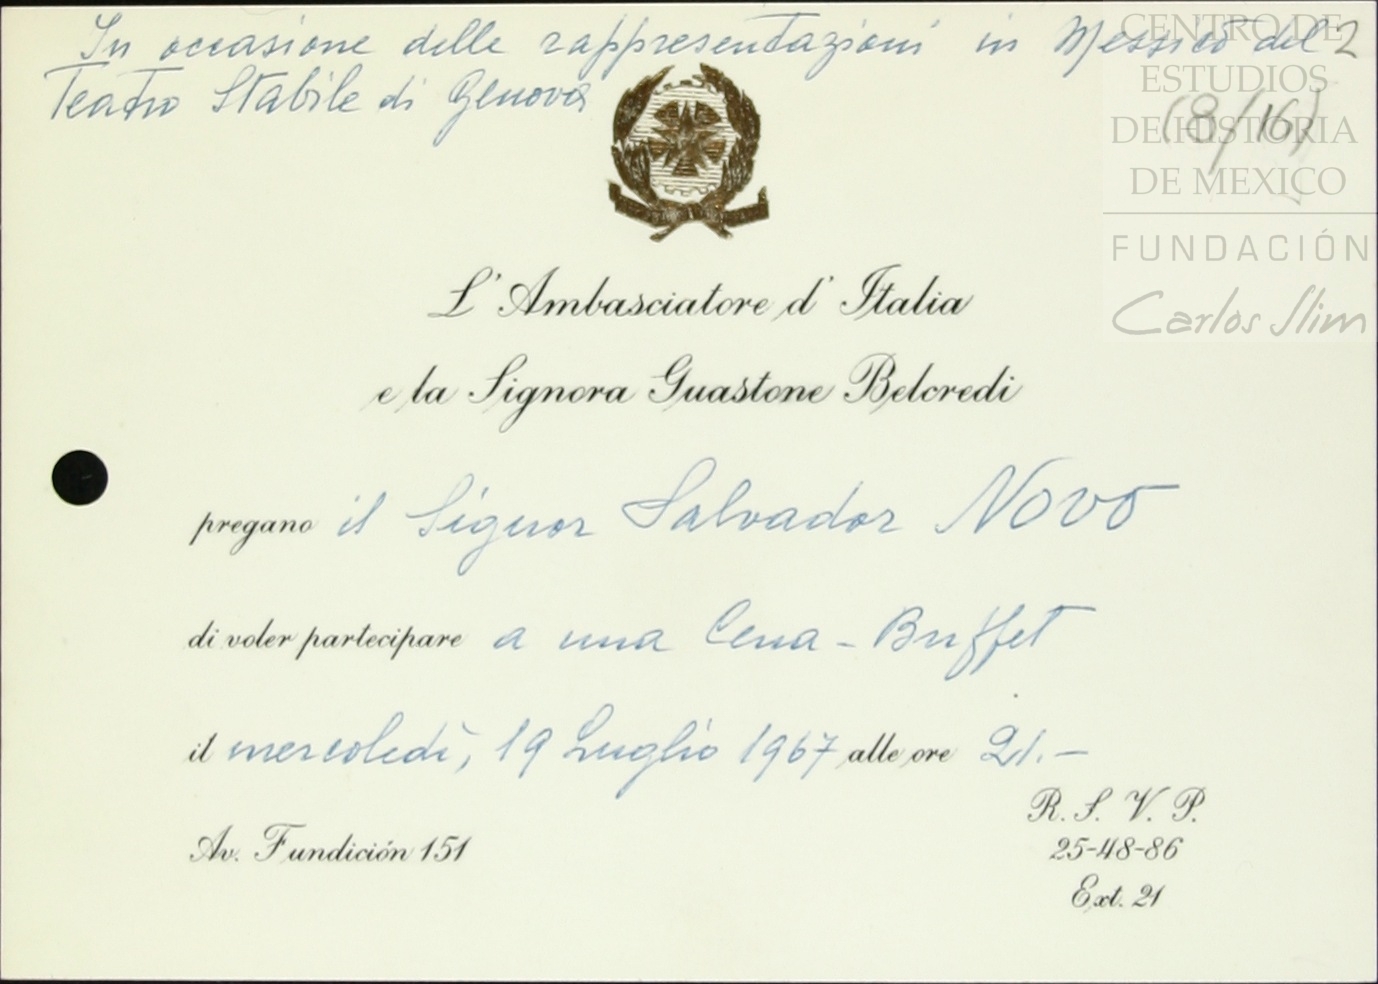 In occasione delle rappresentazioni in Messico del 2
Teatro Stabile di Genova
(8/16)
CENTRO DE
ESTUDIOS
DE HISTORIA
DE MEXICO
FUNDACIÓN
Carlos Slim
L'Ambasciatore d'Italia
e la Signora Guastone Belcredi
pregano il Signor Salvador Novo
di voler partecipare a una Cena-Buffet
il mercoledì, 19 Luglio 1967 alle ore 21.-
R. S. V. P.
Av. Fundición 151
25-48-86
Ext. 21